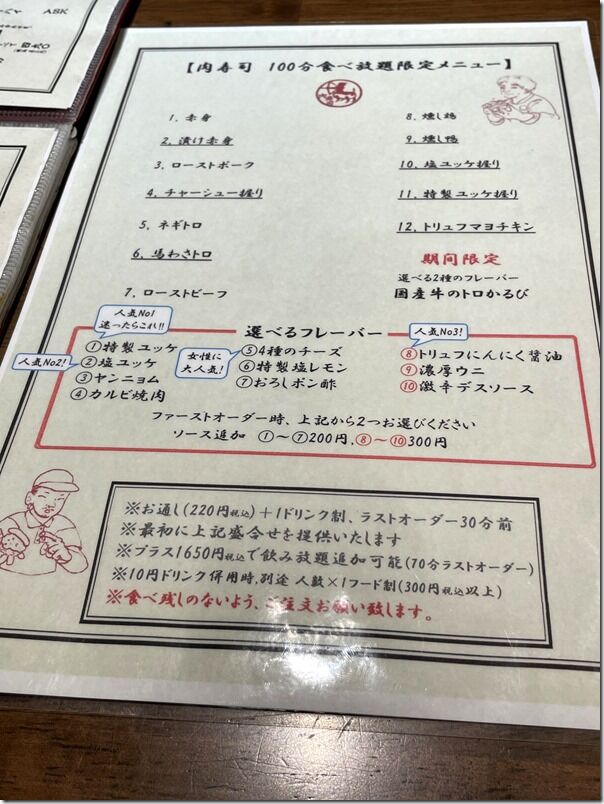 ASK
【肉寿司 100分食べ放題限定メニュー】
1. 赤身
2. 漬け赤身
3. ローストポーク
4. チャーシュー握り
5. ネギトロ
6. 馬わさトロ
7. ローストビーフ
8. 燻し鶏
9. 燻し鴨
10. 塩ユッケ握り
11. 特製ユッケ握り
12. トリュフマヨチキン
期間限定
選べる2種のフレーバー
国産牛のトロかるび
選べるフレーバー
人気No1
迷ったらこれ!!
①特製ユッケ
人気No2!
②塩ユッケ
③ヤンニョム
④カルビ焼肉
女性に
大人気!
⑤4種のチーズ
⑥特製塩レモン
⑦おろしポン酢
人気No3!
⑧トリュフにんにく醤油
⑨濃厚ウニ
⑩激辛デスソース
ファーストオーダー時、上記から2つお選びください
ソース追加 ①～⑦200円, ⑧～⑩300円
※お通し(220円税込)＋1ドリンク制、ラストオーダー30分前
※最初に上記盛合せを提供いたします
※プラス1650円税込で飲み放題追加可能(70分ラストオーダー)
※10円ドリンク併用時、別途 人数×1フード制(300円税込以上)
※食べ残しのないよう、ご注文お願い致します。